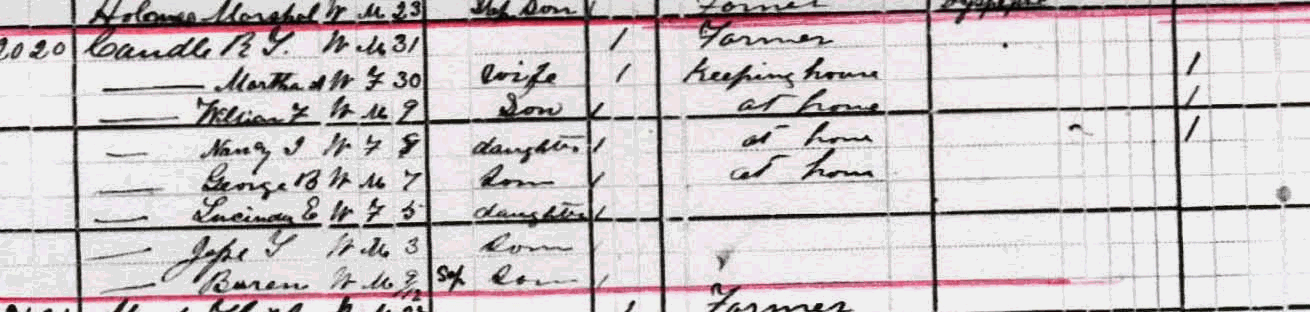 Holomes Marshal W M 23 Step Son 1 Farmer
2020 Caudle R T. W M 31 1 Farmer
Martha A W F 30 Wife 1 Keeping house 1
William F W M 9 Son 1 at home 1
Nancy J W F 8 daughter 1 at home 1
George B W M 7 Son 1 at home
Lucinda E W F 5 daughter 1
Jesse T W M 3 Son
Buren W M 9/12 Sep Son 1
W M 1 Farmer